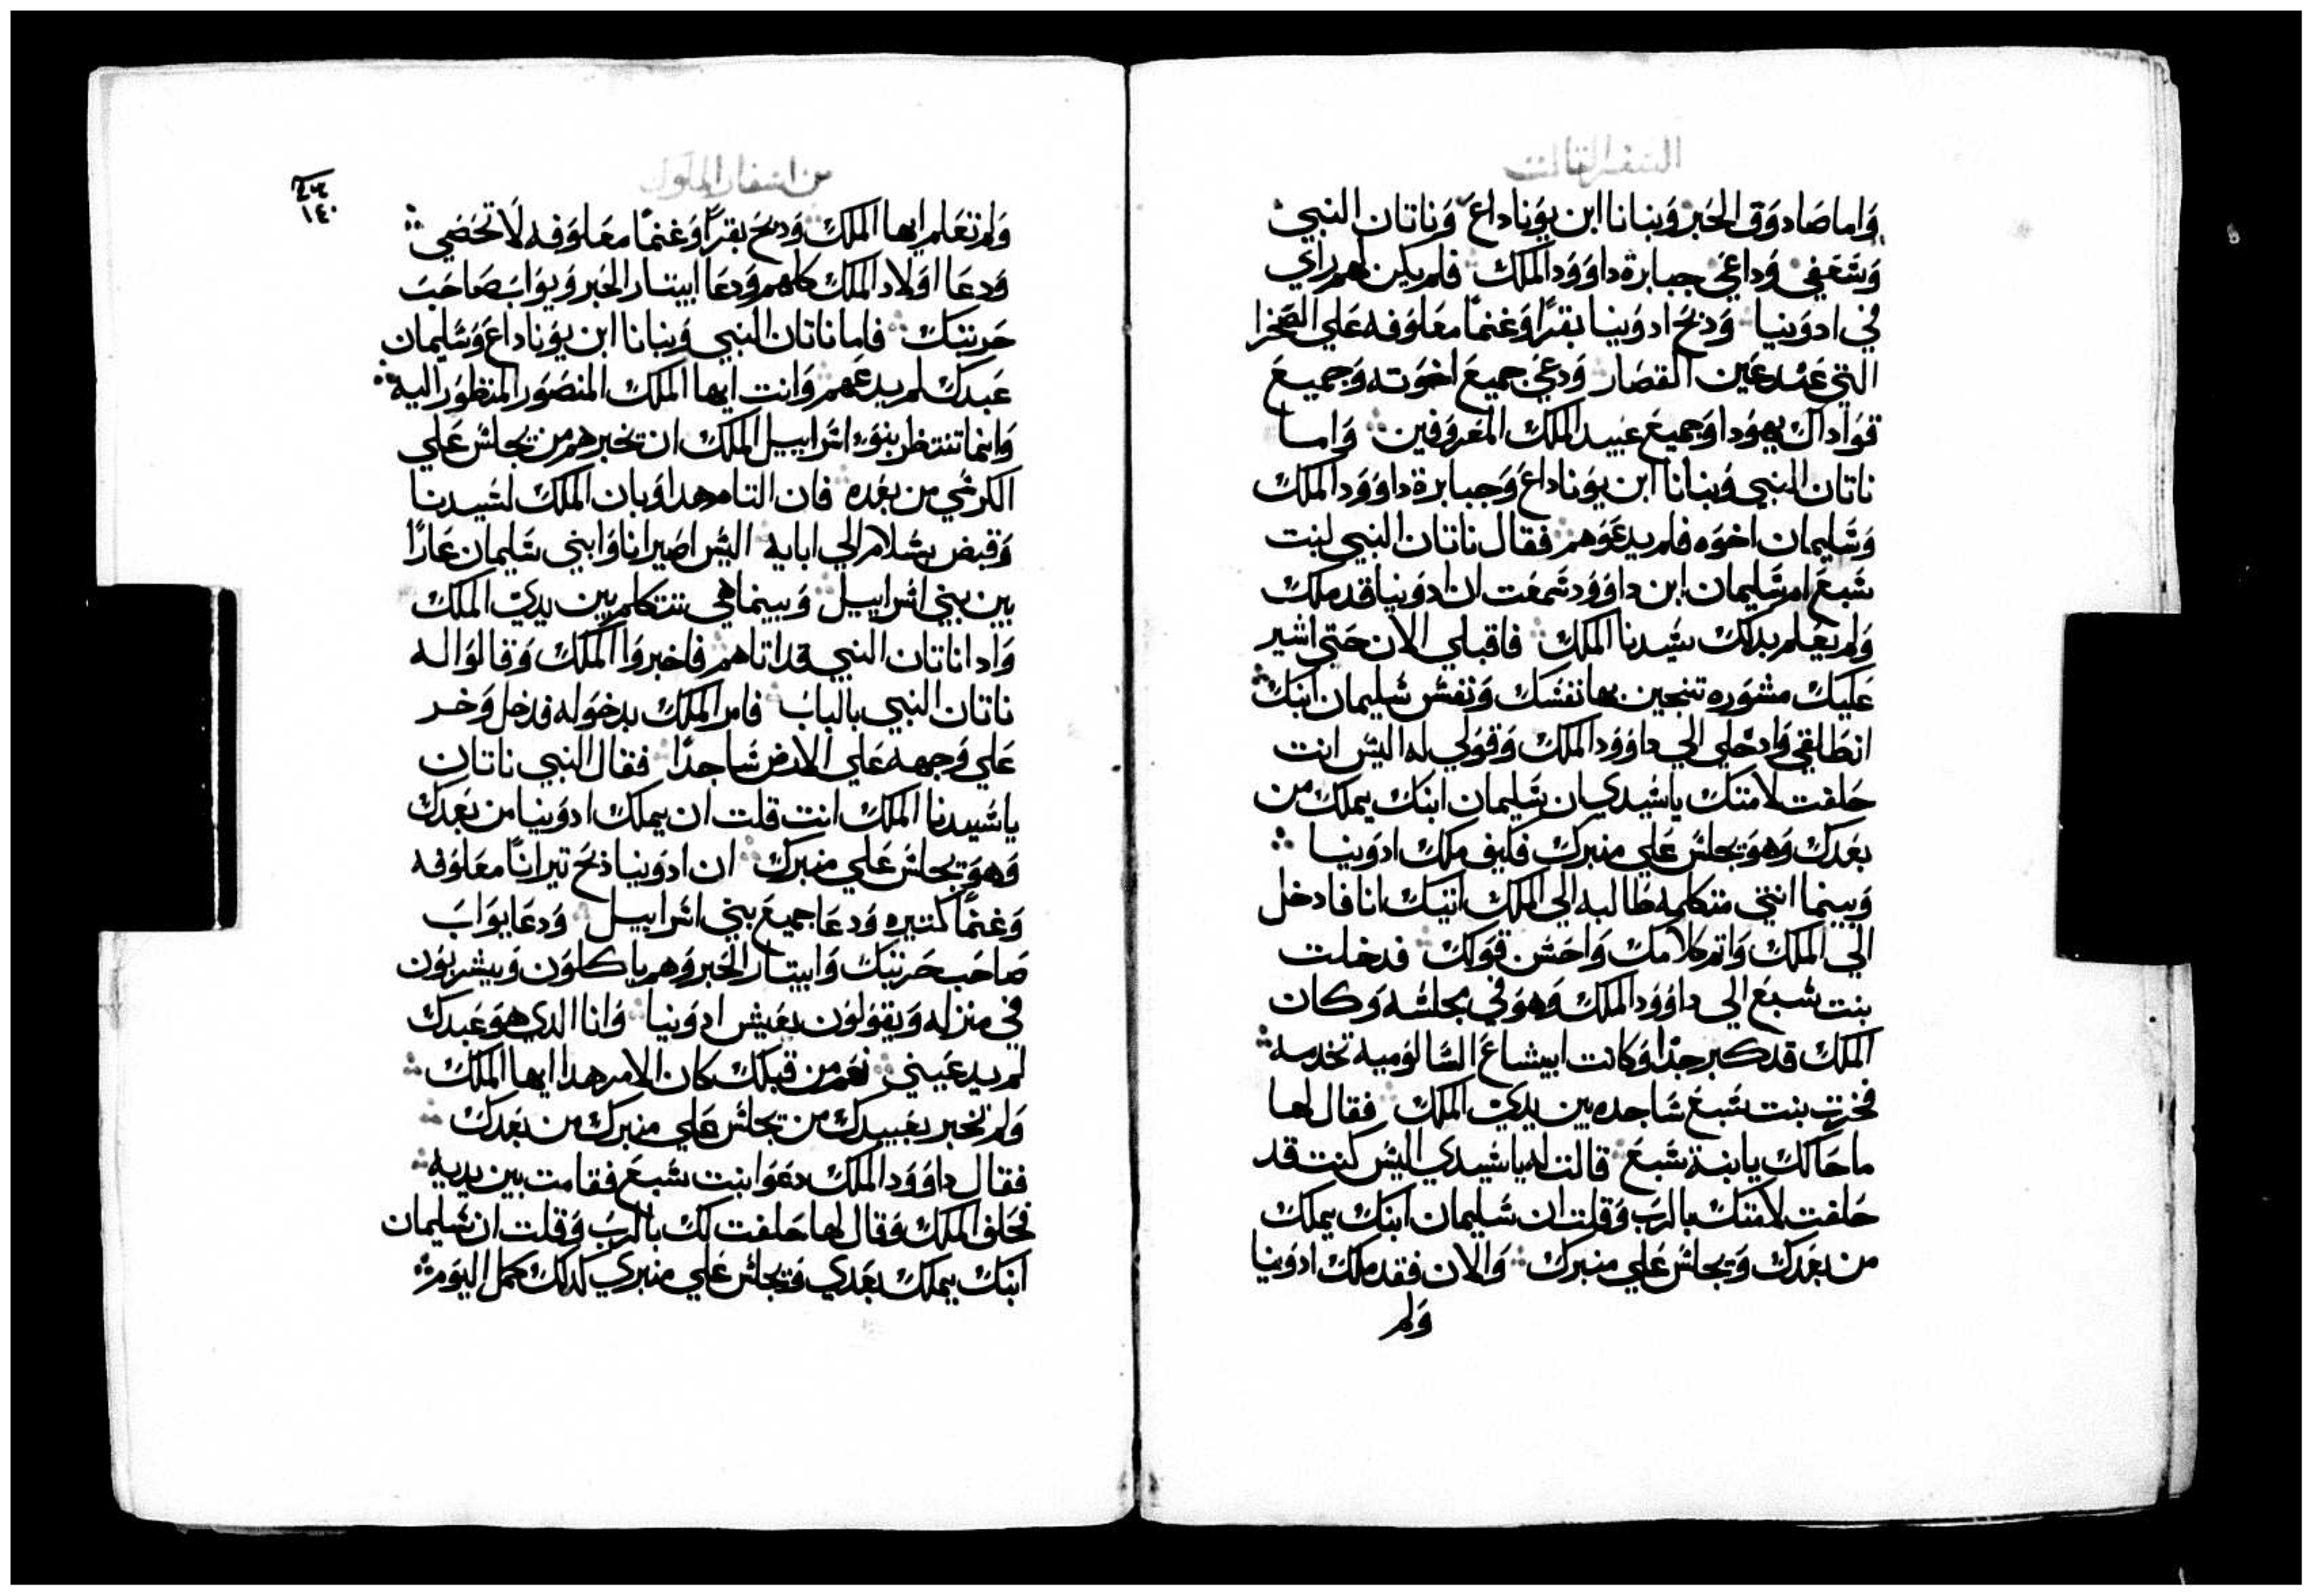 السفر الثالت
واما صادوق الحبر وبنانا ابن يوناداع وناتان النبي
وشمعي وداعي جبابرة داوود الملك فلم يكن لهم راي
في ادونيا ودبح ادونيا بقرًا وغنمًا معلوفه علي الصخرا
التي عند عين القصار ودعي جميع اخوته وجميع
قواد ال يهودا وجميع عبيد الملك المعروفين واما
ناتان النبي وبنانا ابن يوناداع وجبابرة داوود الملك
وسليمان اخوه فلم يدعوهم فقال ناتان النبي لبنت
شبع ام سليمان ابن داوود سمعت ان ادونيا قد ملك
ولم يعلم بدلك سيدنا الملك فاقبلي الان حتي اشير
عليك مشوره تنجين بها نفسك ونفس سليمان ابنك
انطلقي وادخلي الي داوود الملك وقولي له اليس انت
حلفت لامتك يا سيدي ان سليمان ابنك يملك من
بعدك وهو يجلس علي منبرك فكيف ملك ادونيا
وبينما انتي متكلمه طالبه الي الملك اتيك انا فادخل
الي الملك واتم كلامك واحسن قولك فدخلت
بنت شبع الي داوود الملك وهو في مجلسه وكان
الملك قد كبر جدًا وكانت ابيشاغ الشالوميه تخدمه
فخرت بنت شبع ساجده بين يدي الملك فقال لها
ما حالك يا ابنة شبع قالت له يا سيدي اليس كنت قد
حلفت لامتك بالرب وقلت ان سليمان ابنك يملك
من بعدك ويجلس علي منبرك والان فقد ملك ادونيا
ولم
من اسفار الملوك
١٤٠
ولم تعلم ايها الملك ودبح بقرًا وغنمًا معلوفه لا تحصي
ودعا اولاد الملك كلهم ودعا ابيتار الحبر ويواب صاحب
حربتك فاما ناتان النبي وبنانا ابن يوناداع وسليمان
عبدك لم يدعهم وانت ايها الملك المنصور المنظور اليه
وانما تنتظر بنو اسراييل الملك ان تخبرهم من يجلس علي
الكرسي من بعده فان التام هدا وبان الملك لسيدنا
وقبض بسلام الي ابايه اليس اصير انا وابني سليمان عارًا
بين بني اسراييل وبينما هي تتكلم بين يدي الملك
وادا ناتان النبي قد اتاهم فاخبروا الملك وقالوا له
ناتان النبي بالباب فامر الملك بدخوله فدخل وخر
علي وجهه علي الارض ساجدًا فقال النبي ناتان
يا سيدنا الملك انت قلت ان يملك ادونيا من بعدك
وهو يجلس علي منبرك ان ادونيا دبح تيرانًا معلوفه
وغنمًا كتيره ودعا جميع بني اسراييل ودعا يواب
صاحب حربتك وابيتار الحبر وهم ياكلون ويشربون
في منزله ويقولون يعيش ادونيا وانا الدي هو عبدك
لم يدعيني نعم من قبلك كان الامر هدا ايها الملك
ولم تخبر بعبيدك من يجلس علي منبرك من بعدك
فقال داوود الملك دعوا بنت شبع فقامت بين يديه
فحلف الملك وقال لها حلفت لك بالرب وقلت ان سليمان
ابنك يملك بعدي ويجلس علي منبري كدلك كمل اليوم